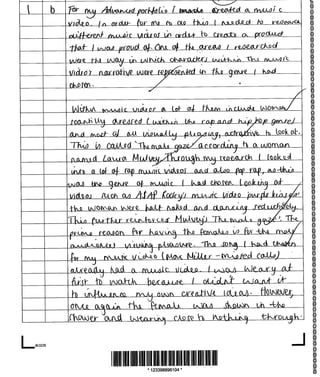 1 b For my Advanced portfolio I made created a music
video. In order for me to do this I needed to research
different music videos in order to create a product
that I was proud of. One of the areas I researched
were the way in which characters within the music
videos narrative were represented in the genre I had
chosen.
Within music videos a lot of them include women
scantily dressed (within the rap and hip hop genres)
and most of all visually pleasing, actractive to look at.
This is called 'The male gaze' according to a woman
named Laura Mulvey. Through my research I looked
into a lot of rap music videos and also pop rap, as this
was the genre of music I had chosen. Looking at
videos such as A$AP Rocky's music video purple kisses
the women were half naked and dancing seductively.
This further reinforced Mulvey's The male gaze. The
prime reason for having the females is for the male
audiences viewing pleasure. The song I had chosen
for my music video (Mac Miller - missed calls)
already had a music video. I was weary at
first to watch because I didn't want it
to influence my own creative ideas. However,
once again the female was shown in the
shower and wearing close to nothing through-